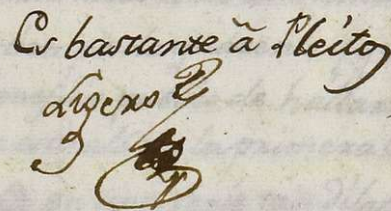 Es bastante â Pleito
Ligero